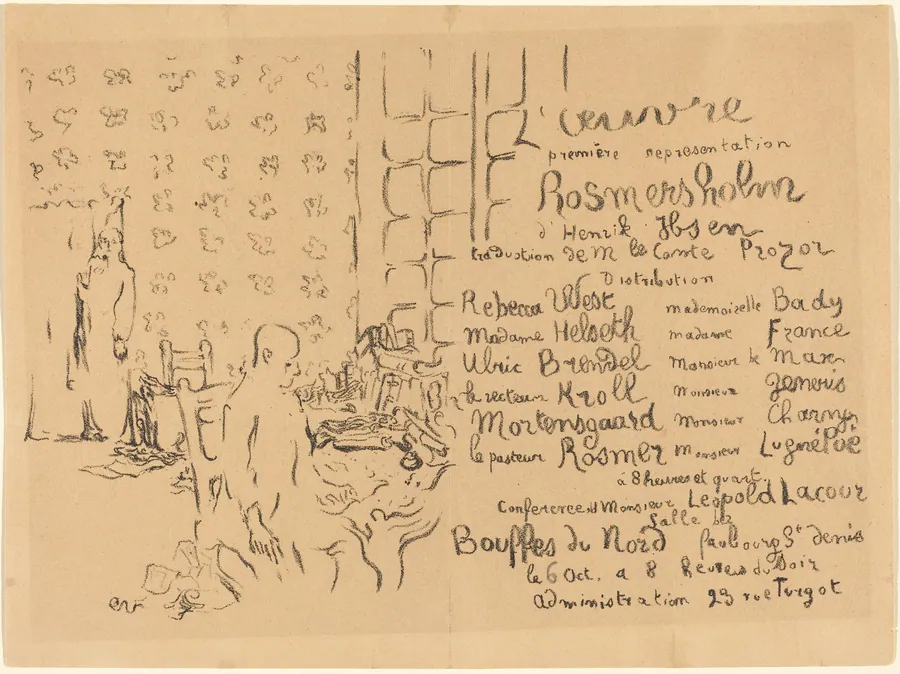 L'œuvre
première representation
Rosmersholm
d'Henrik Ibsen
traduction de M le Comte Prozor
Distribution
Rebecca West mademoiselle Bady
Madame Helseth madame France
Ulric Brendel Monsieur de Max
le recteur Kroll Monsieur
Mortensgaard Monsieur Charny
le pasteur Rosmer Monsieur Lugné Poë
à 8 heures et quart
Conference de Monsieur Leopold Lacour
Salle des
Bouffes du Nord faubourg St denis
le 6 Oct. a 8 heures du Soir
administration 23 rue Turgot
ev